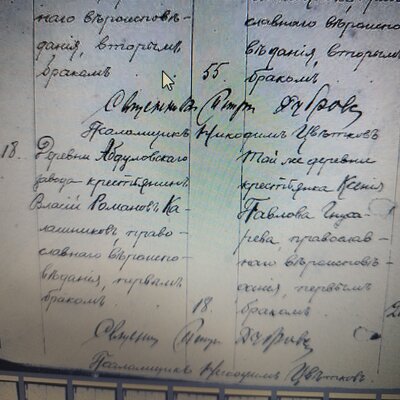 наго вѣроисповѣ-
данія, вторымъ
бракомъ
55.
славнаго вѣроиспо
вѣданія, вторым
бракомъ
Священникъ Петръ Дубров
Псаломщикъ Никодимъ Цвѣтковъ
18.
Деревни Абдуловскаго
завода крестьянинъ
Власій Романовъ Ка-
лашниковъ, право-
славнаго вѣроиспо-
вѣданія, первымъ
бракомъ
18.
Той же деревни
крестьянка Ксенія
Павлова
рева, православ-
наго вѣроисповѣ-
данія, первымъ
бракомъ
2
Священ Петръ Дубров
Псаломщикъ Никодимъ Цвѣтковъ.